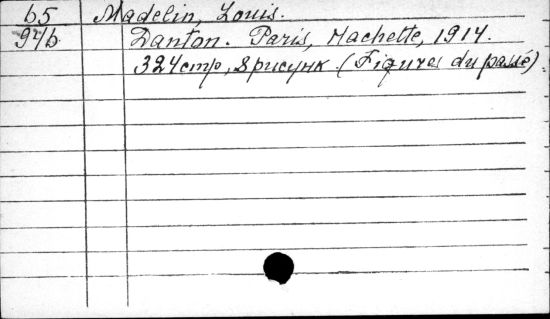 65 Madelin, Louis.
946 Danton. Paris, Hachette, 1914.
324 стр, 8 рисунк. (Figures du passé)